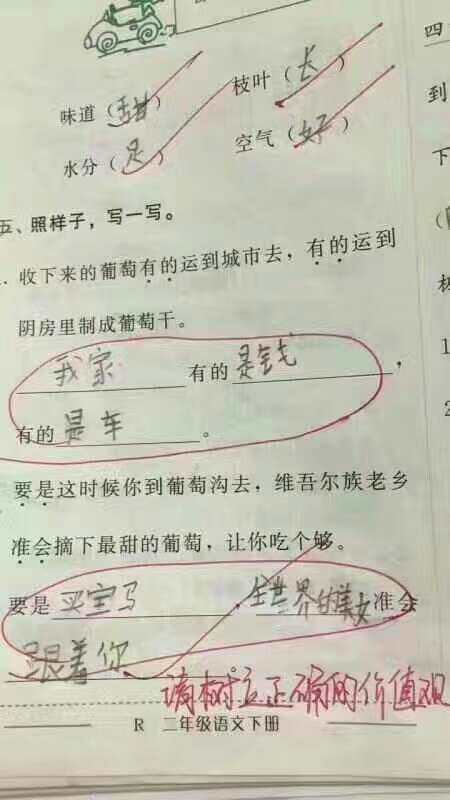 味道（甜） 枝叶（长）
水分（足） 空气（好）
五、照样子，写一写。
. 收下来的葡萄有的运到城市去，有的运到
阴房里制成葡萄干。
我家 有的 是钱，
有的 是车 。
要是这时候你到葡萄沟去，维吾尔族老乡
准会摘下最甜的葡萄，让你吃个够。
要是 买宝马 ，全世界的美女 准会
跟着你
请树立正确的价值观
R 二年级语文下册
四
到
下
1
2